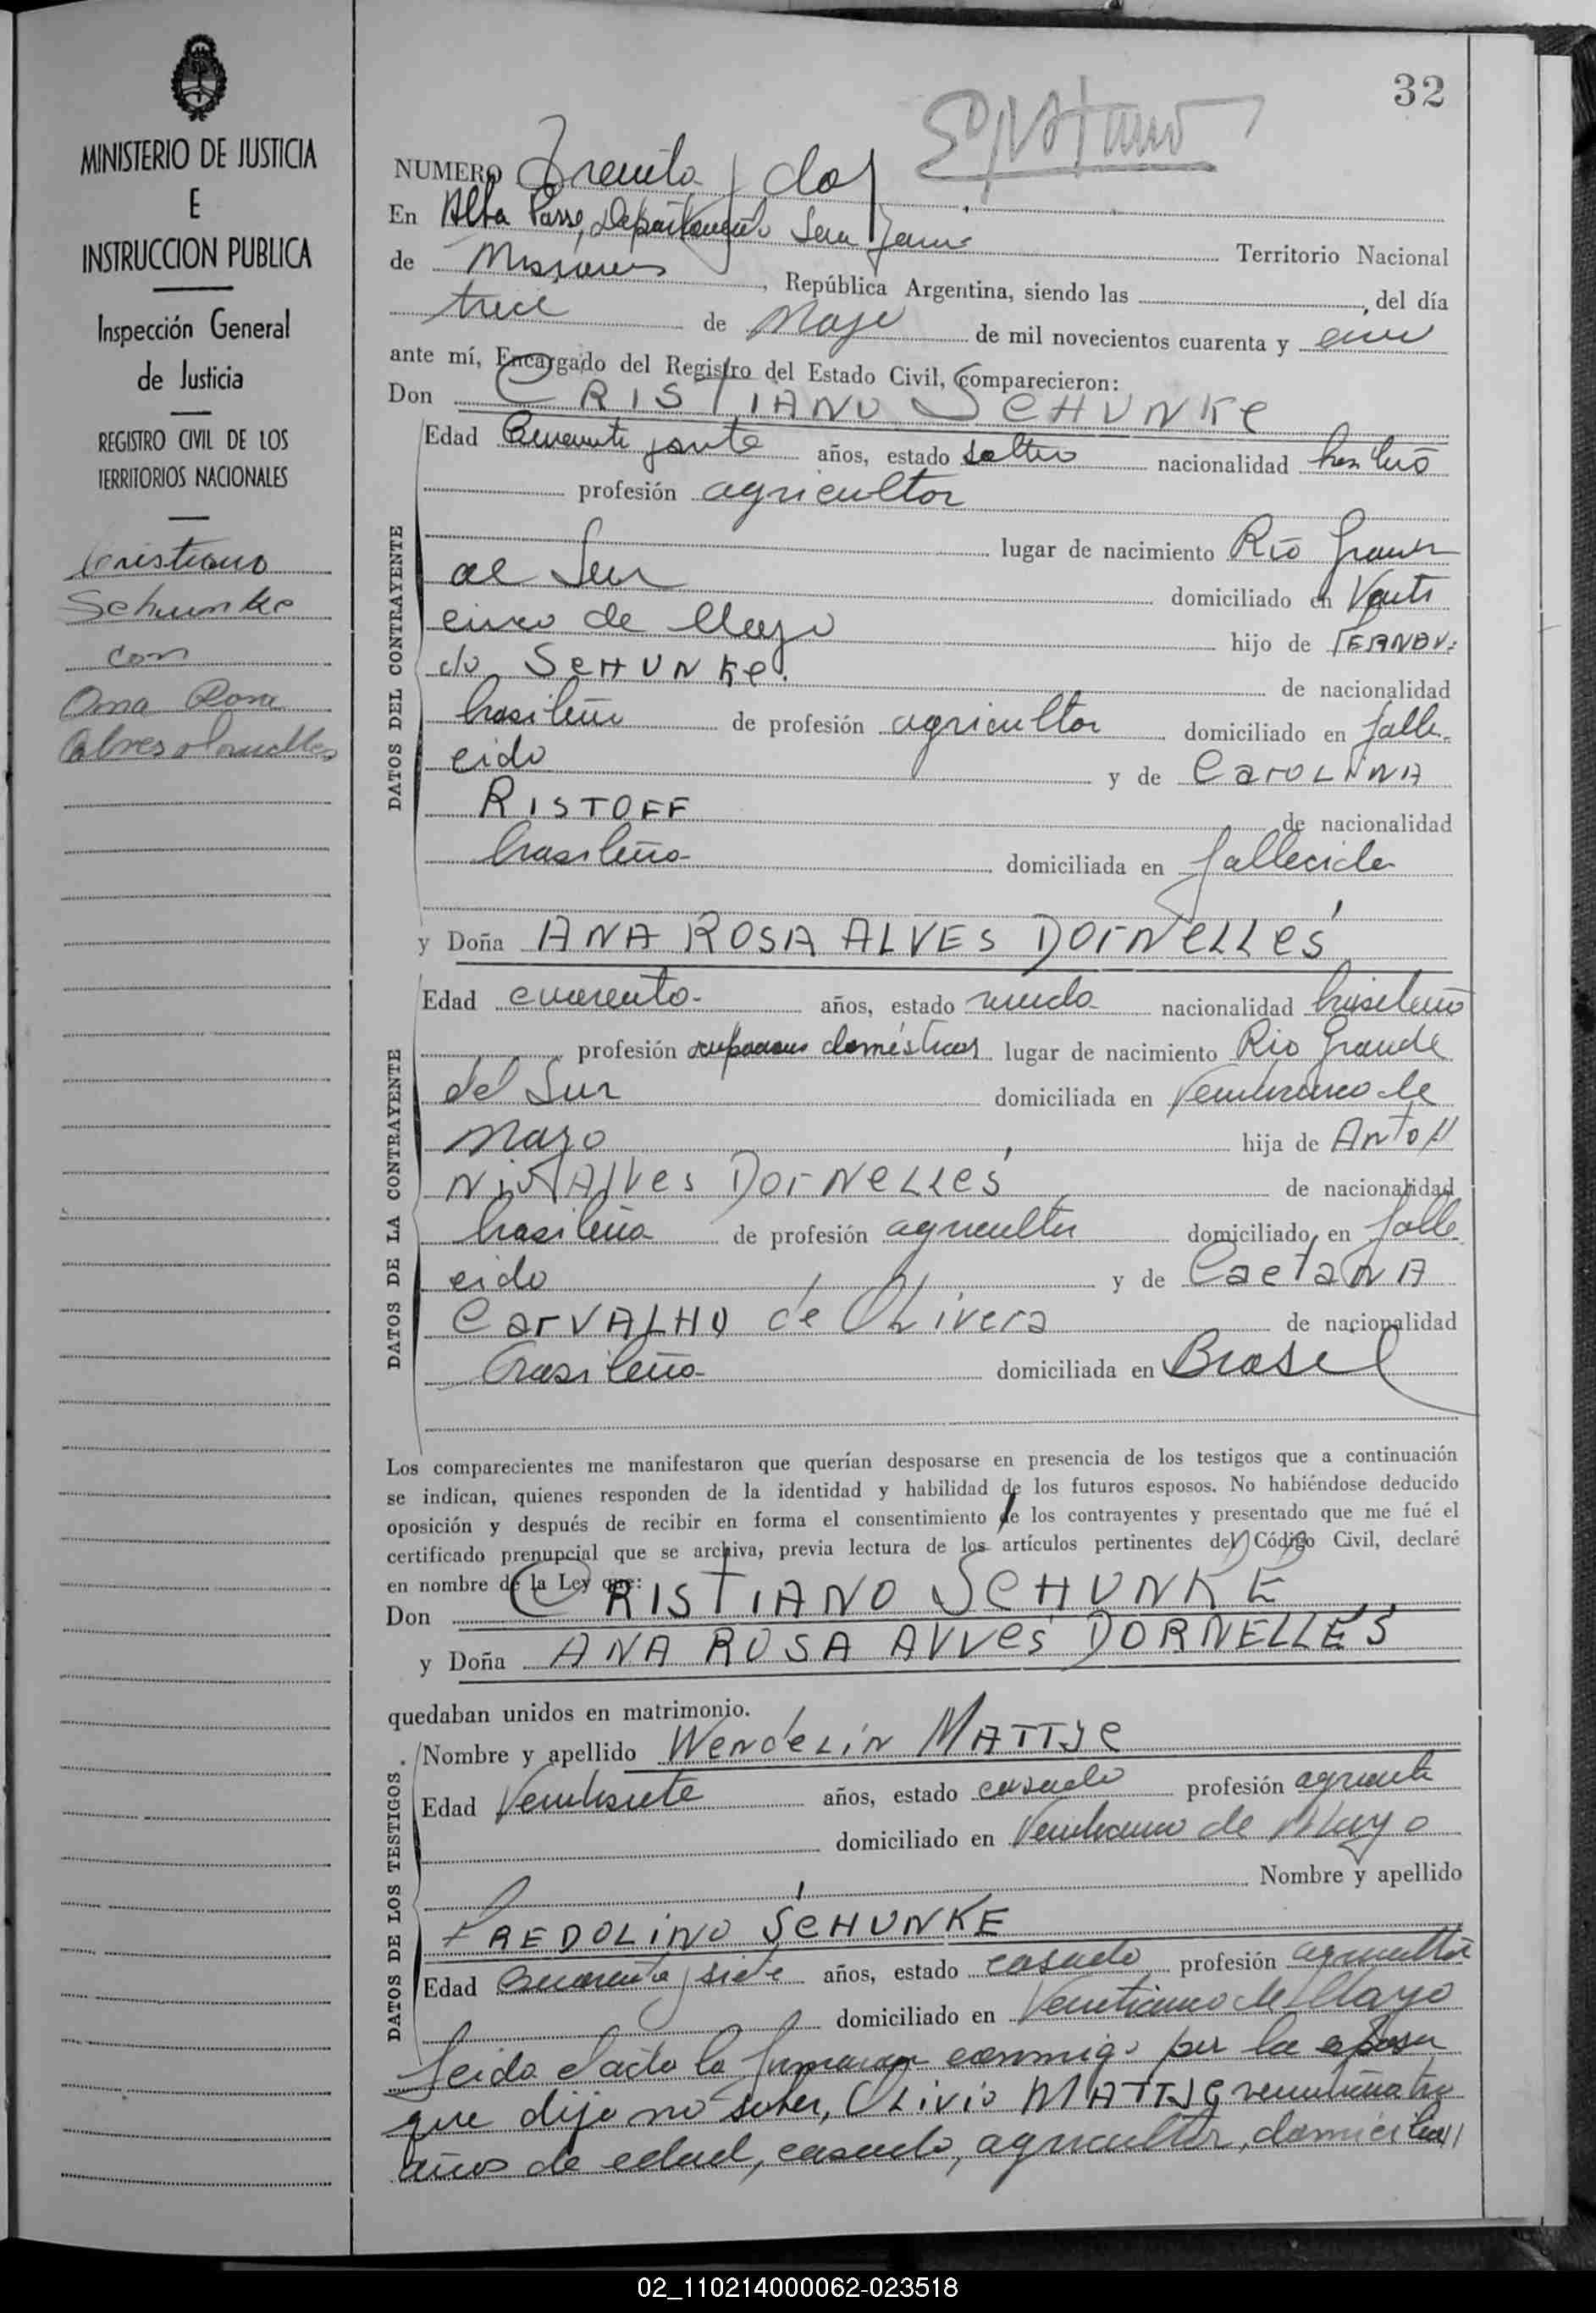 32
MINISTERIO DE JUSTICIA
E
INSTRUCCION PUBLICA
Inspección General
de Justicia
REGISTRO CIVIL DE LOS
TERRITORIOS NACIONALES
Cristiano
Schunke
con
Ana Rosa
Alves Dornelles
NUMERO Treinta y dos
En Alba Posse, Departamento San Javier Territorio Nacional
de Misiones, República Argentina, siendo las , del día
trece de Mayo de mil novecientos cuarenta y
ante mí, Encargado del Registro del Estado Civil, comparecieron:
Don CRISTIANO SCHUNKE
DATOS DEL CONTRAYENTE
Edad años, estado soltero nacionalidad brasileño
profesión agricultor
lugar de nacimiento Río Grande
del Sur domiciliado en Venti
cinco de Mayo hijo de
do SCHUNKE. de nacionalidad
brasileña de profesión agricultor domiciliado en falle-
cido y de CAROLINA
RISTOFF de nacionalidad
brasileña domiciliada en fallecida
y Doña ANA ROSA ALVES DORNELLES
DATOS DE LA CONTRAYENTE
Edad cuarenta años, estado viuda nacionalidad brasileña
profesión ocupaciones domésticas lugar de nacimiento Rio Grande
del Sur domiciliada en Venticinco de
Mayo hija de ANTO//
NIO ALVES DORNELLES de nacionalidad
brasileña de profesión agricultor domiciliado en falle
cido y de CAETANA
CARVALHO de OLIVERA de nacionalidad
brasileña domiciliada en Brasil
Los comparecientes me manifestaron que querían desposarse en presencia de los testigos que a continuación
se indican, quienes responden de la identidad y habilidad de los futuros esposos. No habiéndose deducido
oposición y después de recibir en forma el consentimiento de los contrayentes y presentado que me fué el
certificado prenupcial que se archiva, previa lectura de los artículos pertinentes del Código Civil, declaré
en nombre de la Ley que:
Don CRISTIANO SCHUNKE
y Doña ANA ROSA ALVES DORNELLES
quedaban unidos en matrimonio.
DATOS DE LOS TESTIGOS
Nombre y apellido WENDELIN MATTJE
Edad Ventisiete años, estado casado profesión agricultor
domiciliado en Venticinco de Mayo
Nombre y apellido
FREDOLINO SCHUNKE
Edad Cuarenta y siete años, estado casado profesión agricultor
domiciliado en Venticinco de Mayo
Leida el acta la firmaron conmigo por la esposa
que dijo no saber, OLIVIO MATTJE venticuatro
años de edad, casado, agricultor, domicilia//
02_110214000062-023518